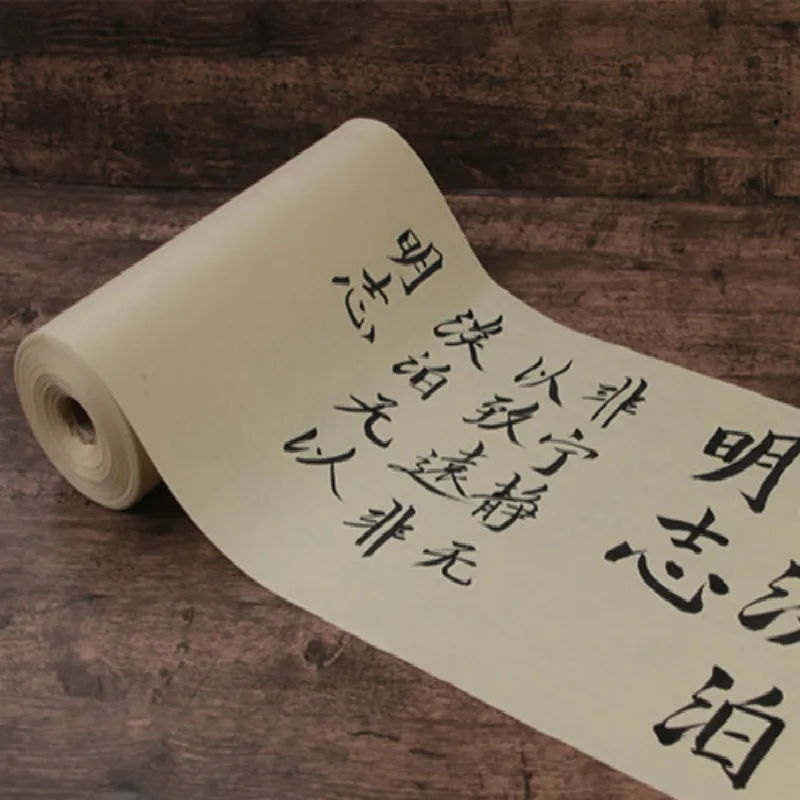 淡泊
明志
非宁静无
以致远非
淡泊无以
明志